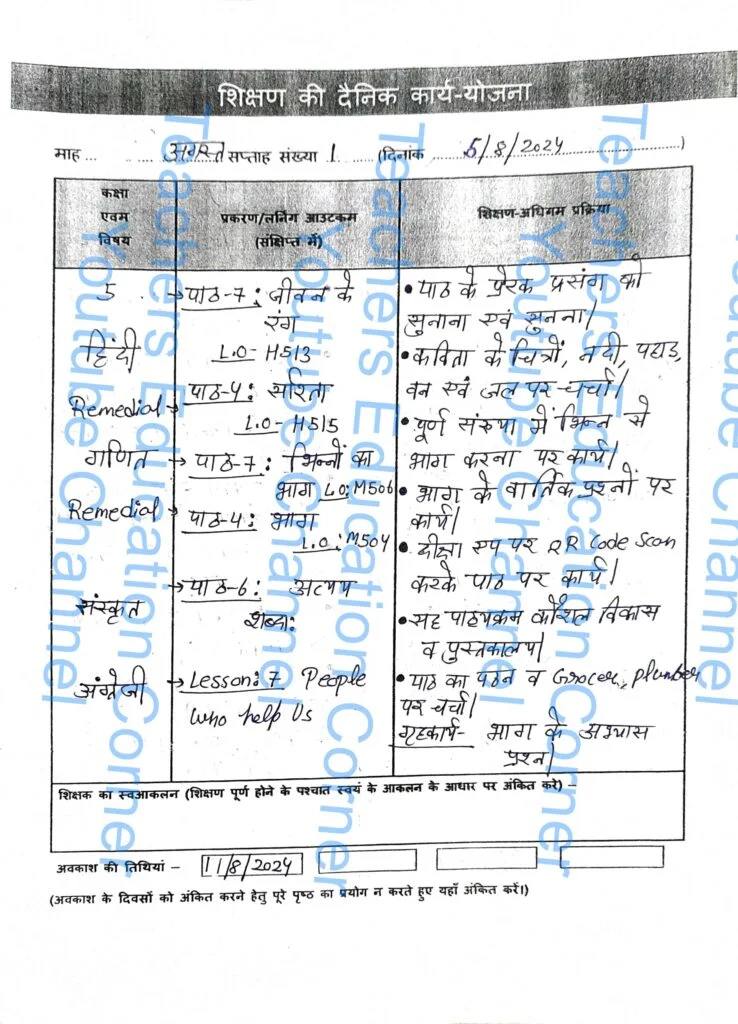 शिक्षण की दैनिक कार्य-योजना
माह ... अगस्त सप्ताह संख्या 1 (दिनांक 5/8/2024)
कक्षा
एवम
विषय
प्रकरण/लर्निंग आउटकम
(संक्षिप्त में)
शिक्षण-अधिगम प्रक्रिया
5
हिंदी
Remedial
गणित
Remedial
संस्कृत
अंग्रेजी
→ पाठ-7: जीवन के
रंग
L.O- H513
→ पाठ-4: सरिता
L.O- H515
→ पाठ-7: भिन्नों का
भाग L.O: M506
→ पाठ-4: भाग
L.O: M504
→ पाठ-6: अव्यय
शब्दा:
→ Lesson: 7 People
who help Us
• पाठ के प्रेरक प्रसंग को
सुनाना एवं सुनना।
• कविता के चित्रों, नदी, पहाड़,
वन एवं जल पर चर्चा।
• पूर्ण संख्या में भिन्न से
भाग करना पर कार्य।
• भाग के वार्तिक प्रश्नों पर
कार्य।
• दीक्षा एप पर QR Code Scan
करके पाठ पर कार्य।
• सह पाठ्यक्रम कौशल विकास
व पुस्तकालय।
• पाठ का पठन व Grocer, plumber
पर चर्चा।
गृहकार्य- भाग के अभ्यास
प्रश्न।
शिक्षक का स्वआकलन (शिक्षण पूर्ण होने के पश्चात स्वयं के आकलन के आधार पर अंकित करें) –
अवकाश की तिथियां – 11/8/2024
(अवकाश के दिवसों को अंकित करने हेतु पूरे पृष्ठ का प्रयोग न करते हुए यहाँ अंकित करें।)
Teachers Education Corner
Youtube Channel
Teachers Education Corner
Youtube Channel
Teachers Education Corner
Youtube Channel